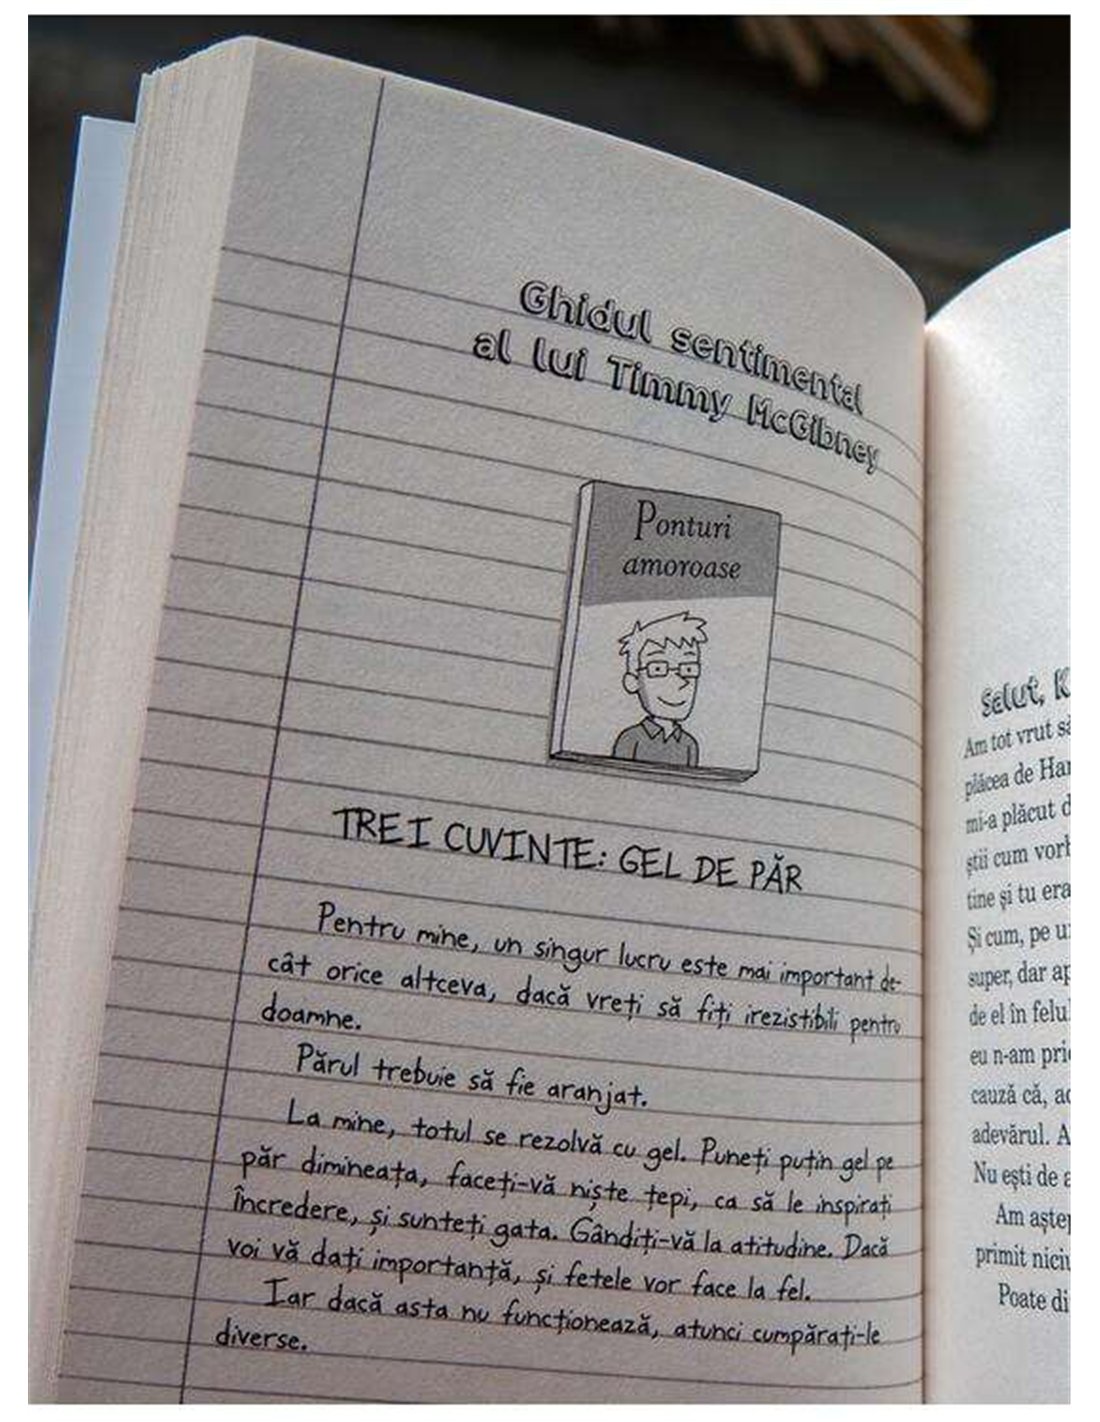 Ghidul sentimental
al lui Timmy McGibney
Ponturi
amoroase
TREI CUVINTE: GEL DE PĂR
Pentru mine, un singur lucru este mai important de-
cât orice altceva, dacă vreți să fiți irezistibili pentru
doamne.
Părul trebuie să fie aranjat.
La mine, totul se rezolvă cu gel. Puneți puțin gel pe
păr dimineața, faceți-vă niște țepi, ca să le inspirați
încredere, și sunteți gata. Gândiți-vă la atitudine. Dacă
voi vă dați importanță, și fetele vor face la fel.
Iar dacă asta nu funcționează, atunci cumpărați-le
diverse.
Salut, K
Am tot vrut să
plăcea de Har
mi-a plăcut d
știi cum vorb
tine și tu era
Și cum, pe u
super, dar ap
de el în felu
eu n-am prie
cauză că, ac
adevărul. A
Nu ești de a
Am aștep
primit niciu
Poate di